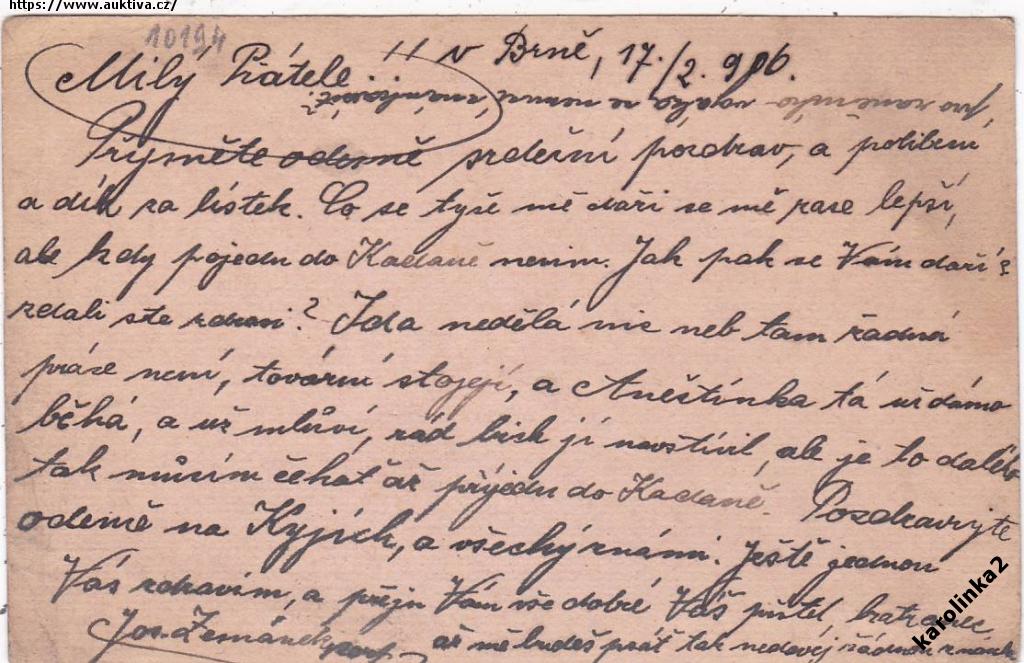 https://www.auktiva.cz/
10194
Milý Přátele..!! v Brně, 17./2. 906.
Přijměte odemě srdeční pozdrav, a políbení
a dík za lístek. Co se tyše mě daří se mě zase lepší,
ale kdy pojedu do Kadaně nevim. Jak pak se Vám daří?
zdali ste zdravi? Ida nedělá nic neb tam žádná
práce není, továrni stojejí, a Aneštínka tá už dámo
běhá, a už mluví, rád bich jí navštívil, ale je to daléko
tak músím čekat až přijedu do Kadaně. Pozdravijte
odemě na Kyjích, a všechý známi. Ještě jednou
Vás zdravím, a přeju Vám vše dobré Váš přítel,
Jos. Zemánek až mě budeš psát tak nedavej žádnou
karolinka2